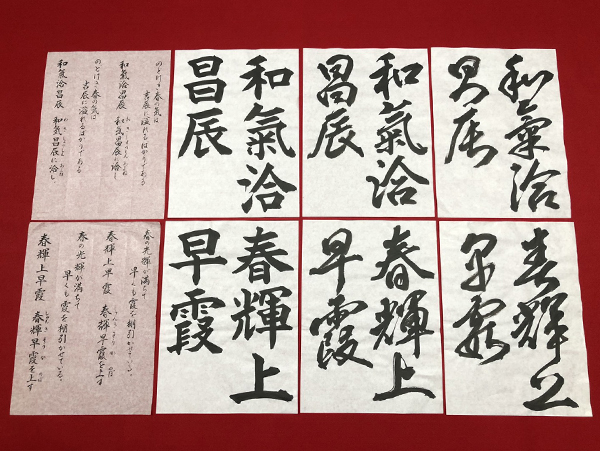 和氣洽
昌辰
和氣洽
昌辰
和氣洽
昌辰
のどけき春の気は
吉辰に溢れるばかりである
和氣洽昌辰
和氣昌辰に洽し
のどけき春の気は
吉辰に溢れるばかりである
和氣洽昌辰
和氣昌辰に洽し
春輝上
早霞
春輝上
早霞
春輝上
早霞
春の光輝が満ちて
早くも霞を棚引かせている
春輝上早霞
春輝早霞を上す
春の光輝が満ちて
早くも霞を棚引かせている
春輝上早霞
春輝早霞を上す